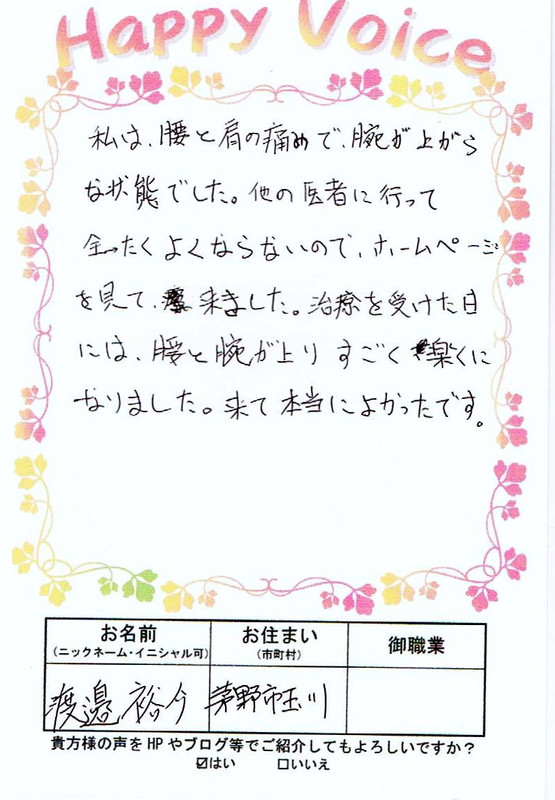 Happy Voice
私は、腰と肩の痛めで、腕が上がら
な状態でした。他の医者に行って
全ったくよくならないので、ホームページ
を見て、来ました。治療を受けた日
には、腰と腕が上り すごく楽くに
なりました。来て本当によかったです。
お名前 お住まい 御職業
(ニックネーム・イニシャル可) (市町村)
渡邉 裕介 茅野市玉川
貴方様の声をHPやブログ等でご紹介してもよろしいですか？
☑はい □いいえ